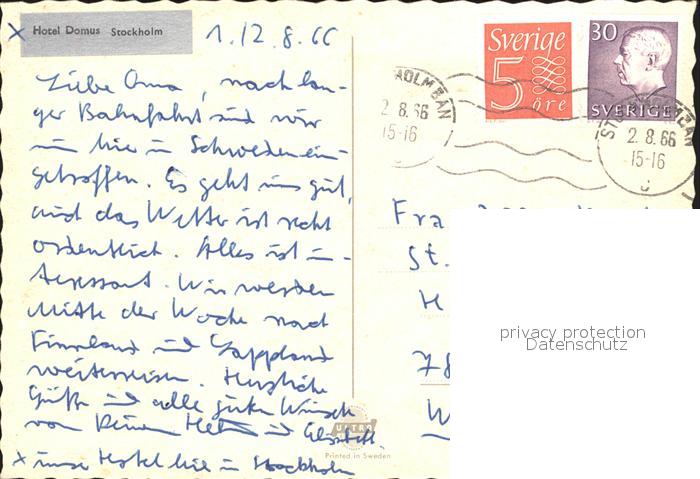 x Hotel Domus Stockholm
1./2.8.66
Liebe Oma, nach lan-
ger Bahnfahrt sind wir
nun hier in Schweden ein-
getroffen. Es geht uns gut,
und das Wetter ist recht
ordentlich. Alles ist in-
teressant. Wir werden
Mitte der Woche nach
Finnland und Lappland
weiterreisen. Herzliche
Grüße und alle guten Wünsche
von Deinem und
x unser Hotel hier in Stockholm
Sverige
5
öre
30
SVERIGE
2.8.66
15-16
2.8.66
15-16
Fra
St.
H
78
W
privacy protection
Datenschutz
ULTRA
Printed in Sweden